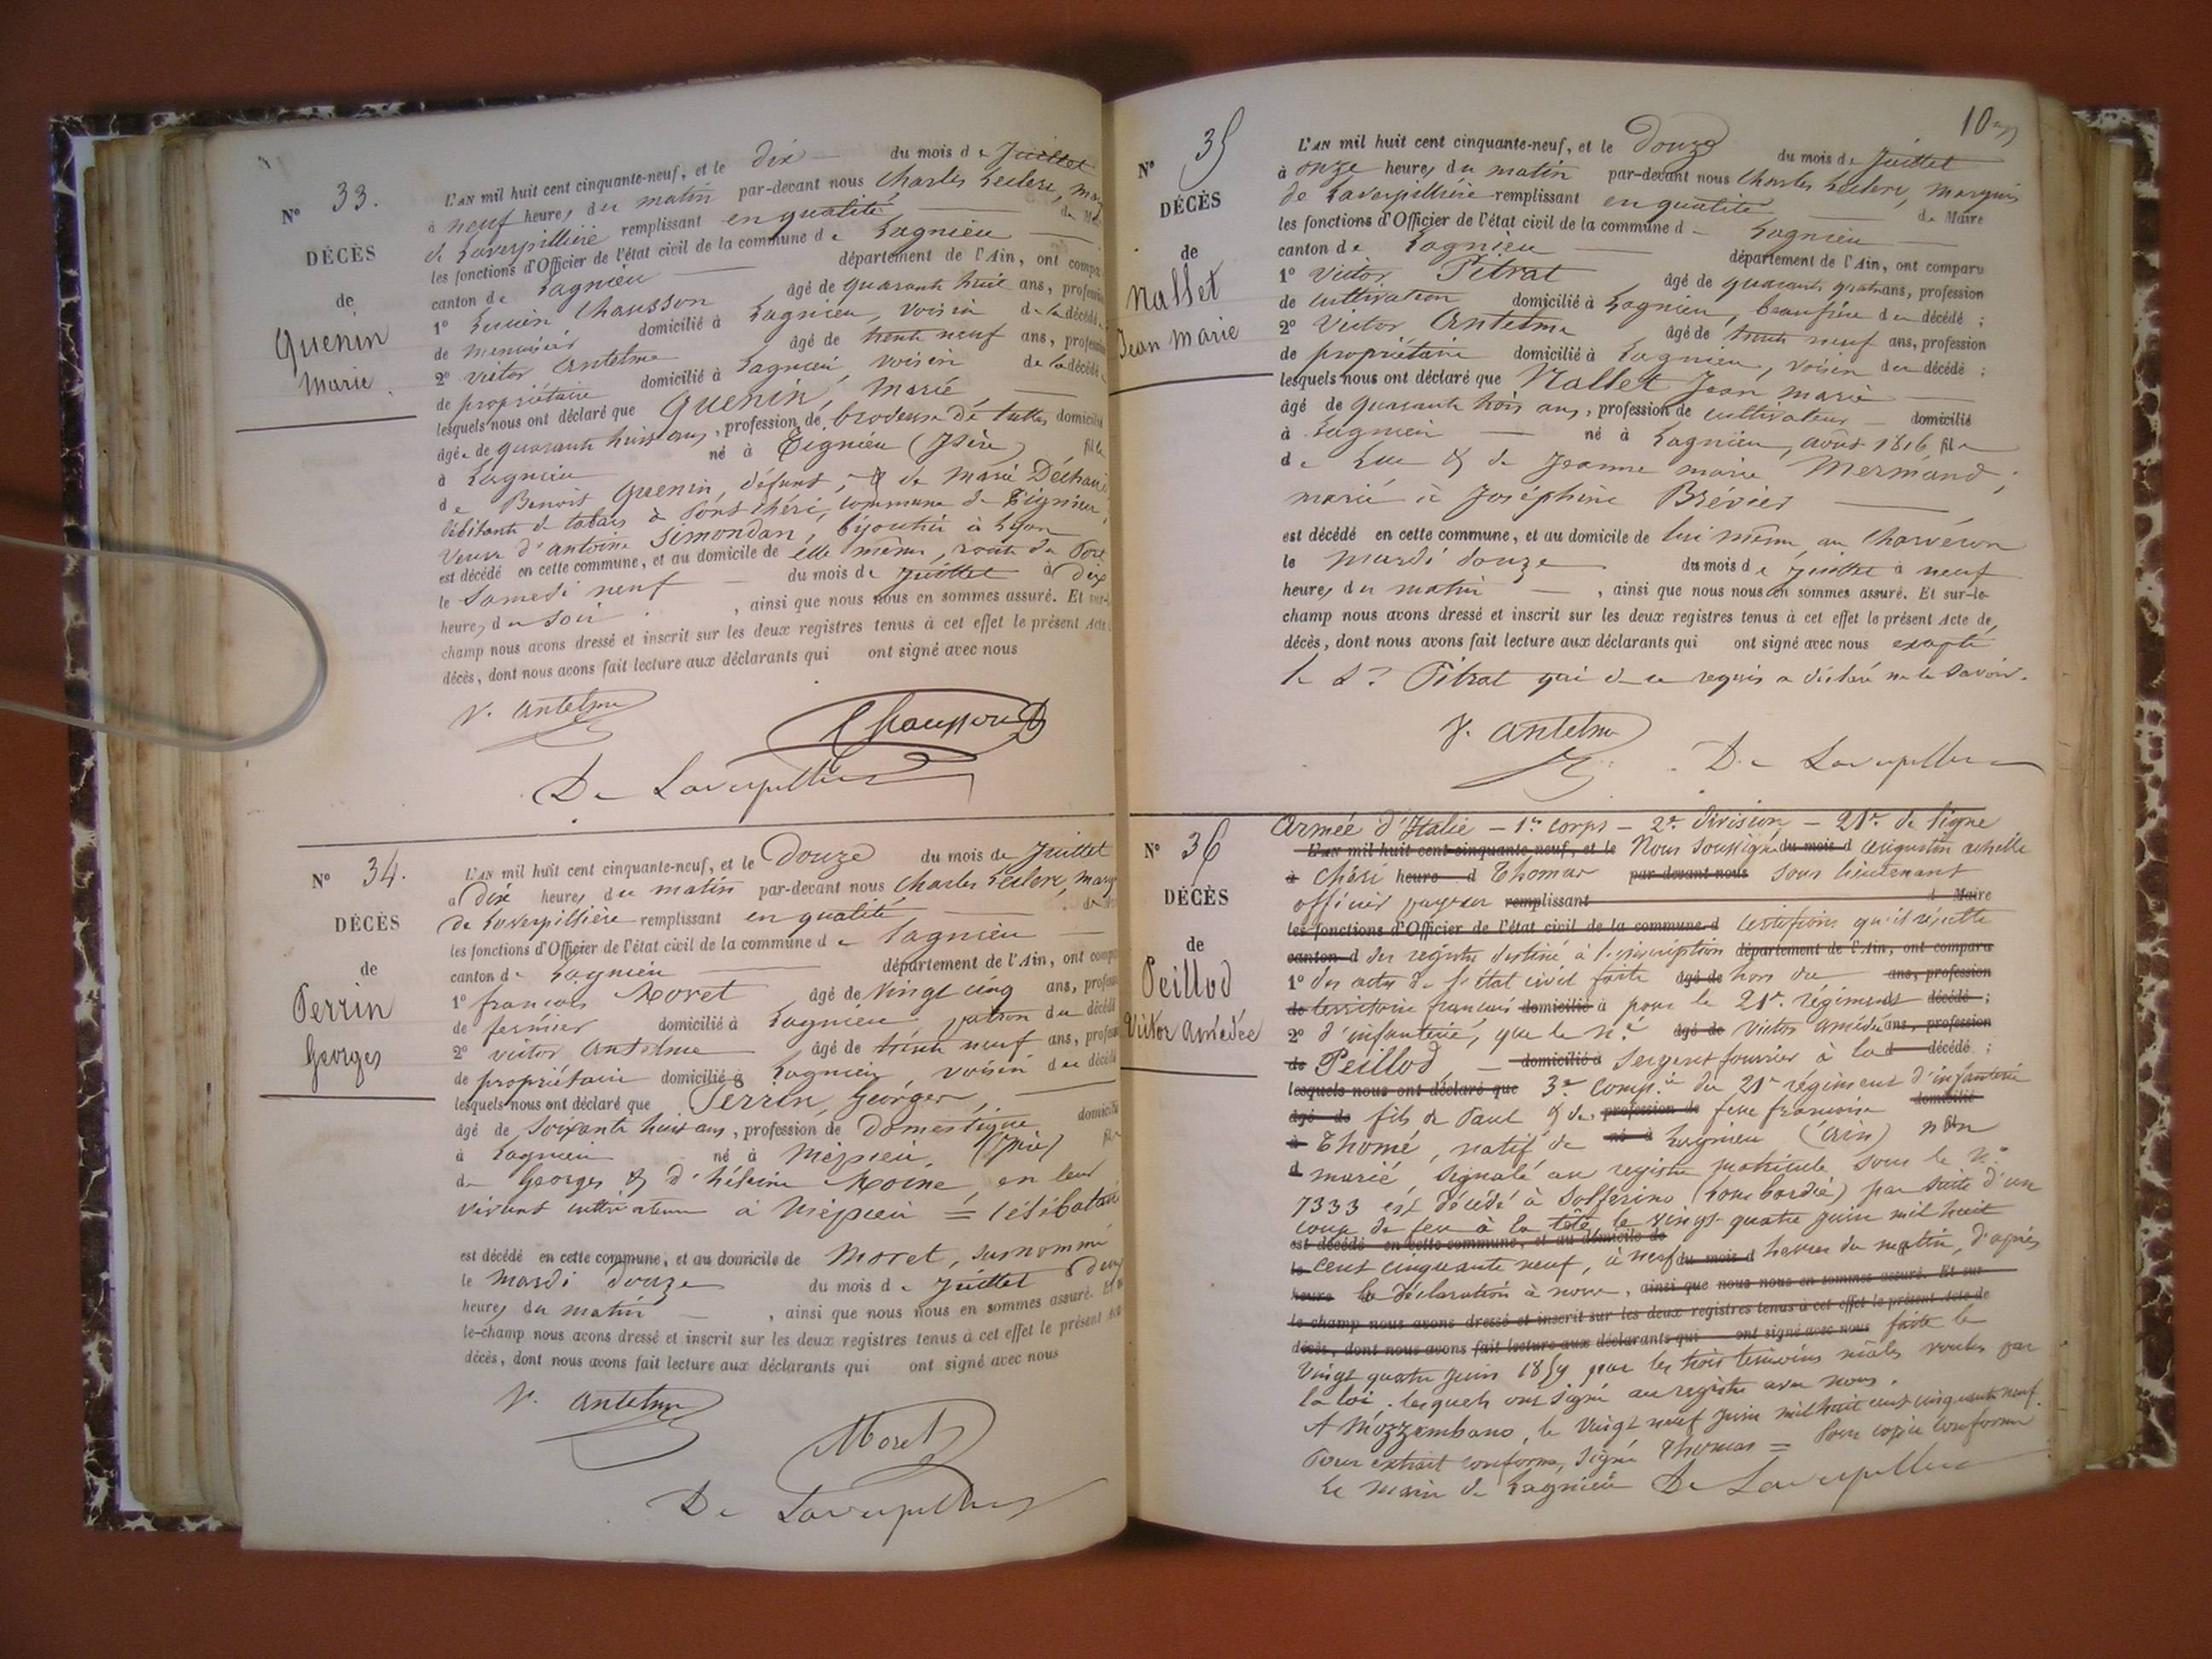 N° 33.
DÉCÈS
de
Quenin
Marie
L'AN mil huit cent cinquante-neuf, et le dix du mois de Juillet
à neuf heures du matin par-devant nous Charles Leclerc, mar
de Laverpillière remplissant en qualité de Ma
les fonctions d'Officier de l'état civil de la commune de Lagnieu
canton de Lagnieu département de l'Ain, ont compa
1° Lucien Chausson âgé de quarante huit ans, profession
de menuisier domicilié à Lagnieu, voisin de la décédé
2° Victor Antelme âgé de trente neuf ans, profession
de propriétaire domicilié à Lagnieu, voisin de la décédé
lesquels nous ont déclaré que Quenin, Marie
âgée de quarante huit ans, profession de brodeuse de tulles domicilié
à Lagnieu né à Tignieu (Isère) fille
de Benoit Quenin, défunt, & de Marie
débitante de tabacs à commune de Tignieu,
veuve d'Antoine Simondan, bijoutier à Lyon
est décédé en cette commune, et au domicile de elle même, route du Port
le Samedi neuf du mois de Juillet à dix
heures du soir, ainsi que nous nous en sommes assuré. Et sur-le
champ nous avons dressé et inscrit sur les deux registres tenus à cet effet le présent Acte
décès, dont nous avons fait lecture aux déclarants qui ont signé avec nous
V. Antelme
Chausson
De Laverpillière
N° 34.
DÉCÈS
de
Perrin
Georges
L'AN mil huit cent cinquante-neuf, et le Douze du mois de Juillet
à dix heures du matin par-devant nous Charles Leclerc, marq
de Laverpillière remplissant en qualité
les fonctions d'Officier de l'état civil de la commune de Lagnieu
canton de Lagnieu département de l'Ain, ont comp
1° françois Moret âgé de Vingt cinq ans, profess
de fermier domicilié à Lagnieu patron du décédé
2° Victor Antelme âgé de trente neuf ans, profess
de propriétaire domicilié à Lagnieu, voisin du décédé
lesquels nous ont déclaré que Perrin, Georges,
âgé de soixante huit ans, profession de domestique domicilié
à Lagnieu né à Mépieu, (Isère) fils
de Georges & d'hélène Moine, en leur
vivant cultivateurs à Mépieu = Célibataire
est décédé en cette commune, et au domicile de Moret, surnommé
le Mardi douze du mois de Juillet à deux
heures du matin, ainsi que nous nous en sommes assuré. Et
le-champ nous avons dressé et inscrit sur les deux registres tenus à cet effet le présent
décès, dont nous avons fait lecture aux déclarants qui ont signé avec nous
V. Antelme
Moret
De Laverpillière
10
N° 35
DÉCÈS
de
Nallet
Jean Marie
L'AN mil huit cent cinquante-neuf, et le Douze du mois de Juillet
à onze heures du matin par-devant nous Charles Leclerc, marquis
de Laverpillière remplissant en qualité de Maire
les fonctions d'Officier de l'état civil de la commune d Lagnieu
canton de Lagnieu département de l'Ain, ont comparu
1° Victor Pitrat âgé de quarante quatre ans, profession
de cultivateur domicilié à Lagnieu, beaufrère du décédé ;
2° Victor Antelme âgé de trente neuf ans, profession
de propriétaire domicilié à Lagnieu, voisin du décédé ;
lesquels nous ont déclaré que Nallet Jean Marie
âgé de quarante trois ans, profession de cultivateur domicilié
à Lagnieu né à Lagnieu, août 1816 fils
de Luc & de Jeanne Marie Mermand ;
marié à Joséphine Brévier
est décédé en cette commune, et au domicile de lui même, au Charveron
le Mardi douze du mois de Juillet à neuf
heures du matin, ainsi que nous nous en sommes assuré. Et sur-le-
champ nous avons dressé et inscrit sur les deux registres tenus à cet effet le présent Acte de
décès, dont nous avons fait lecture aux déclarants qui ont signé avec nous excepté
le Sr Pitrat qui de ce requis a déclaré ne le savoir.
V. Antelme
De Laverpillière
N° 36
DÉCÈS
de
Peillod
Victor Amédée
Armée d'Italie - 1er Corps - 2e Division - 21e de ligne
L'AN mil huit cent cinquante-neuf, et le Nous soussigné du mois d Augustin achille
à Chéri heure d Thomas par-devant nous sous lieutenant
officier payeur remplissant d Maire
les fonctions d'Officier de l'état civil de la commune d certifions qu'il résulte
canton d des registre destiné à l'inscription département de l'Ain, ont comparu
1° des actes de l'état civil faits âgé de hors du ans, profession
de territoire français domicilié à pour le 21e régiment décédé ;
2° d'infanterie, que le âgé de Victor Amédée ans, profession
de Peillod domicilié à Sergent fourrier à la d décédé ;
lesquels nous ont déclaré que 3e Compie du 21e régiment d'infanterie
âgé de fils de Paul & de profession de feue françoise domicilié
à Thomé, natif de né à Lagnieu (Ain) non
d marié, signalé au registre matricule sous le n°
7333 est décédé à Solférino (Lombardie) par suite d'un
coup de feu à la tête, le vingt-quatre juin mil huit
est décédé en cette commune, et au domicile de
le cent cinquante neuf, à neuf du mois d heures du matin, d'après
heure la déclaration à nous, ainsi que nous nous en sommes assuré. Et sur
le champ nous avons dressé et inscrit sur les deux registres tenus à cet effet le présent Acte de
décès, dont nous avons fait lecture aux déclarants qui ont signé avec nous faite le
Vingt quatre juin 1859 par les trois témoins mâles voulus par
la loi, lesquels ont signé au registre avec nous.
A Mozzembano, le Vingt neuf juin mil huit cent cinquante neuf.
Pour extrait conforme, signé Thomas = Pour copie conforme
Le Maire de Lagnieu De Laverpillière